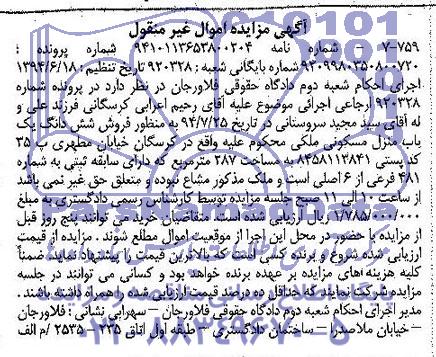 آگهی مزایده اموال غیر منقول
۷۵۹-۷ - شماره نامه ۹۴۱۰۱۱۳۶۵۳۸۰۰۲۰۴ شماره پرونده :
۹۲۰۹۹۸۰۳۵۰۸۰۰۷۲۰ شماره بایگانی شعبه : ۹۲۰۳۲۸ تاریخ تنظیم : ۱۳۹۴/۶/۱۸
اجرای احکام شعبه دوم دادگاه حقوقی فلاورجان در نظر دارد در پرونده شماره
۹۲۰۳۲۸ ارجاعی اجرائی موضوع علیه آقای رحیم اعرابی کرسگانی فرزند علی و
له آقای سید مجید سروستانی در تاریخ ۹۴/۷/۲۵ به منظور فروش شش دانگ یک
باب منزل مسکونی ملکی محکوم علیه واقع در کرسگان خیابان مطهری پ ۳۵
کد پستی ۸۴۵۸۱۱۳۸۴۱ به مساحت ۲۸۷ مترمربع که دارای سابقه ثبتی به شماره
۴۸۱ فرعی از ۶ اصلی است و ملک مذکور مشاع نبوده و متعلق حق غیر نمی باشد
از ساعت ۱۰ الی ۱۱ صبح جلسه مزایده توسط کارشناس رسمی دادگستری به مبلغ
۱/۷۸۵/۰۰۰/۰۰۰ ریال ارزیابی شده است. متقاضیان خرید می توانند پنج روز قبل
از مزایده با حضور در محل این اجرا از موقعیت اموال مطلع شوند. مزایده از قیمت
ارزیابی شده شروع و برنده کسی است که بالاترین قیمت را پیشنهاد نماید ضمناً
کلیه هزینه های مزایده بر عهده برنده خواهد بود و کسانی می توانند در جلسه
مزایده شرکت نمایند که حداقل ده درصد قیمت ارزیابی شده را همراه داشته باشند.
مدیر اجرای احکام شعبه دوم دادگاه حقوقی فلاورجان – سهرابی نشانی : فلاورجان
– خیابان ملاصدرا – ساختمان دادگستری – طبقه اول اتاق ۲۳۵ - ۲۵۳۵ / م الف